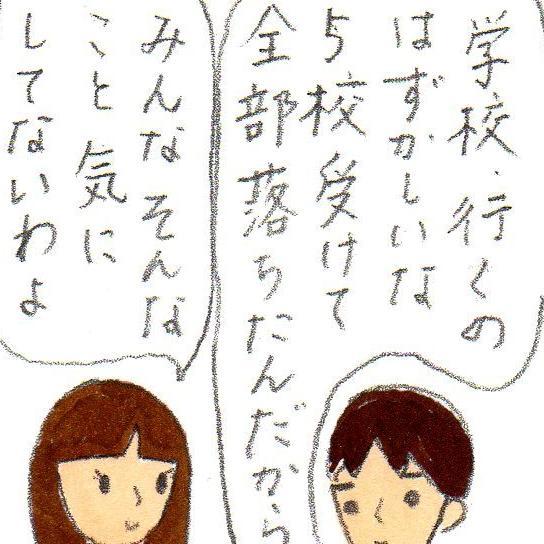 学校行くの
はずかしいな
5校受けて
全部落ちたんだから
みんなそんな
こと気に
してないわよ